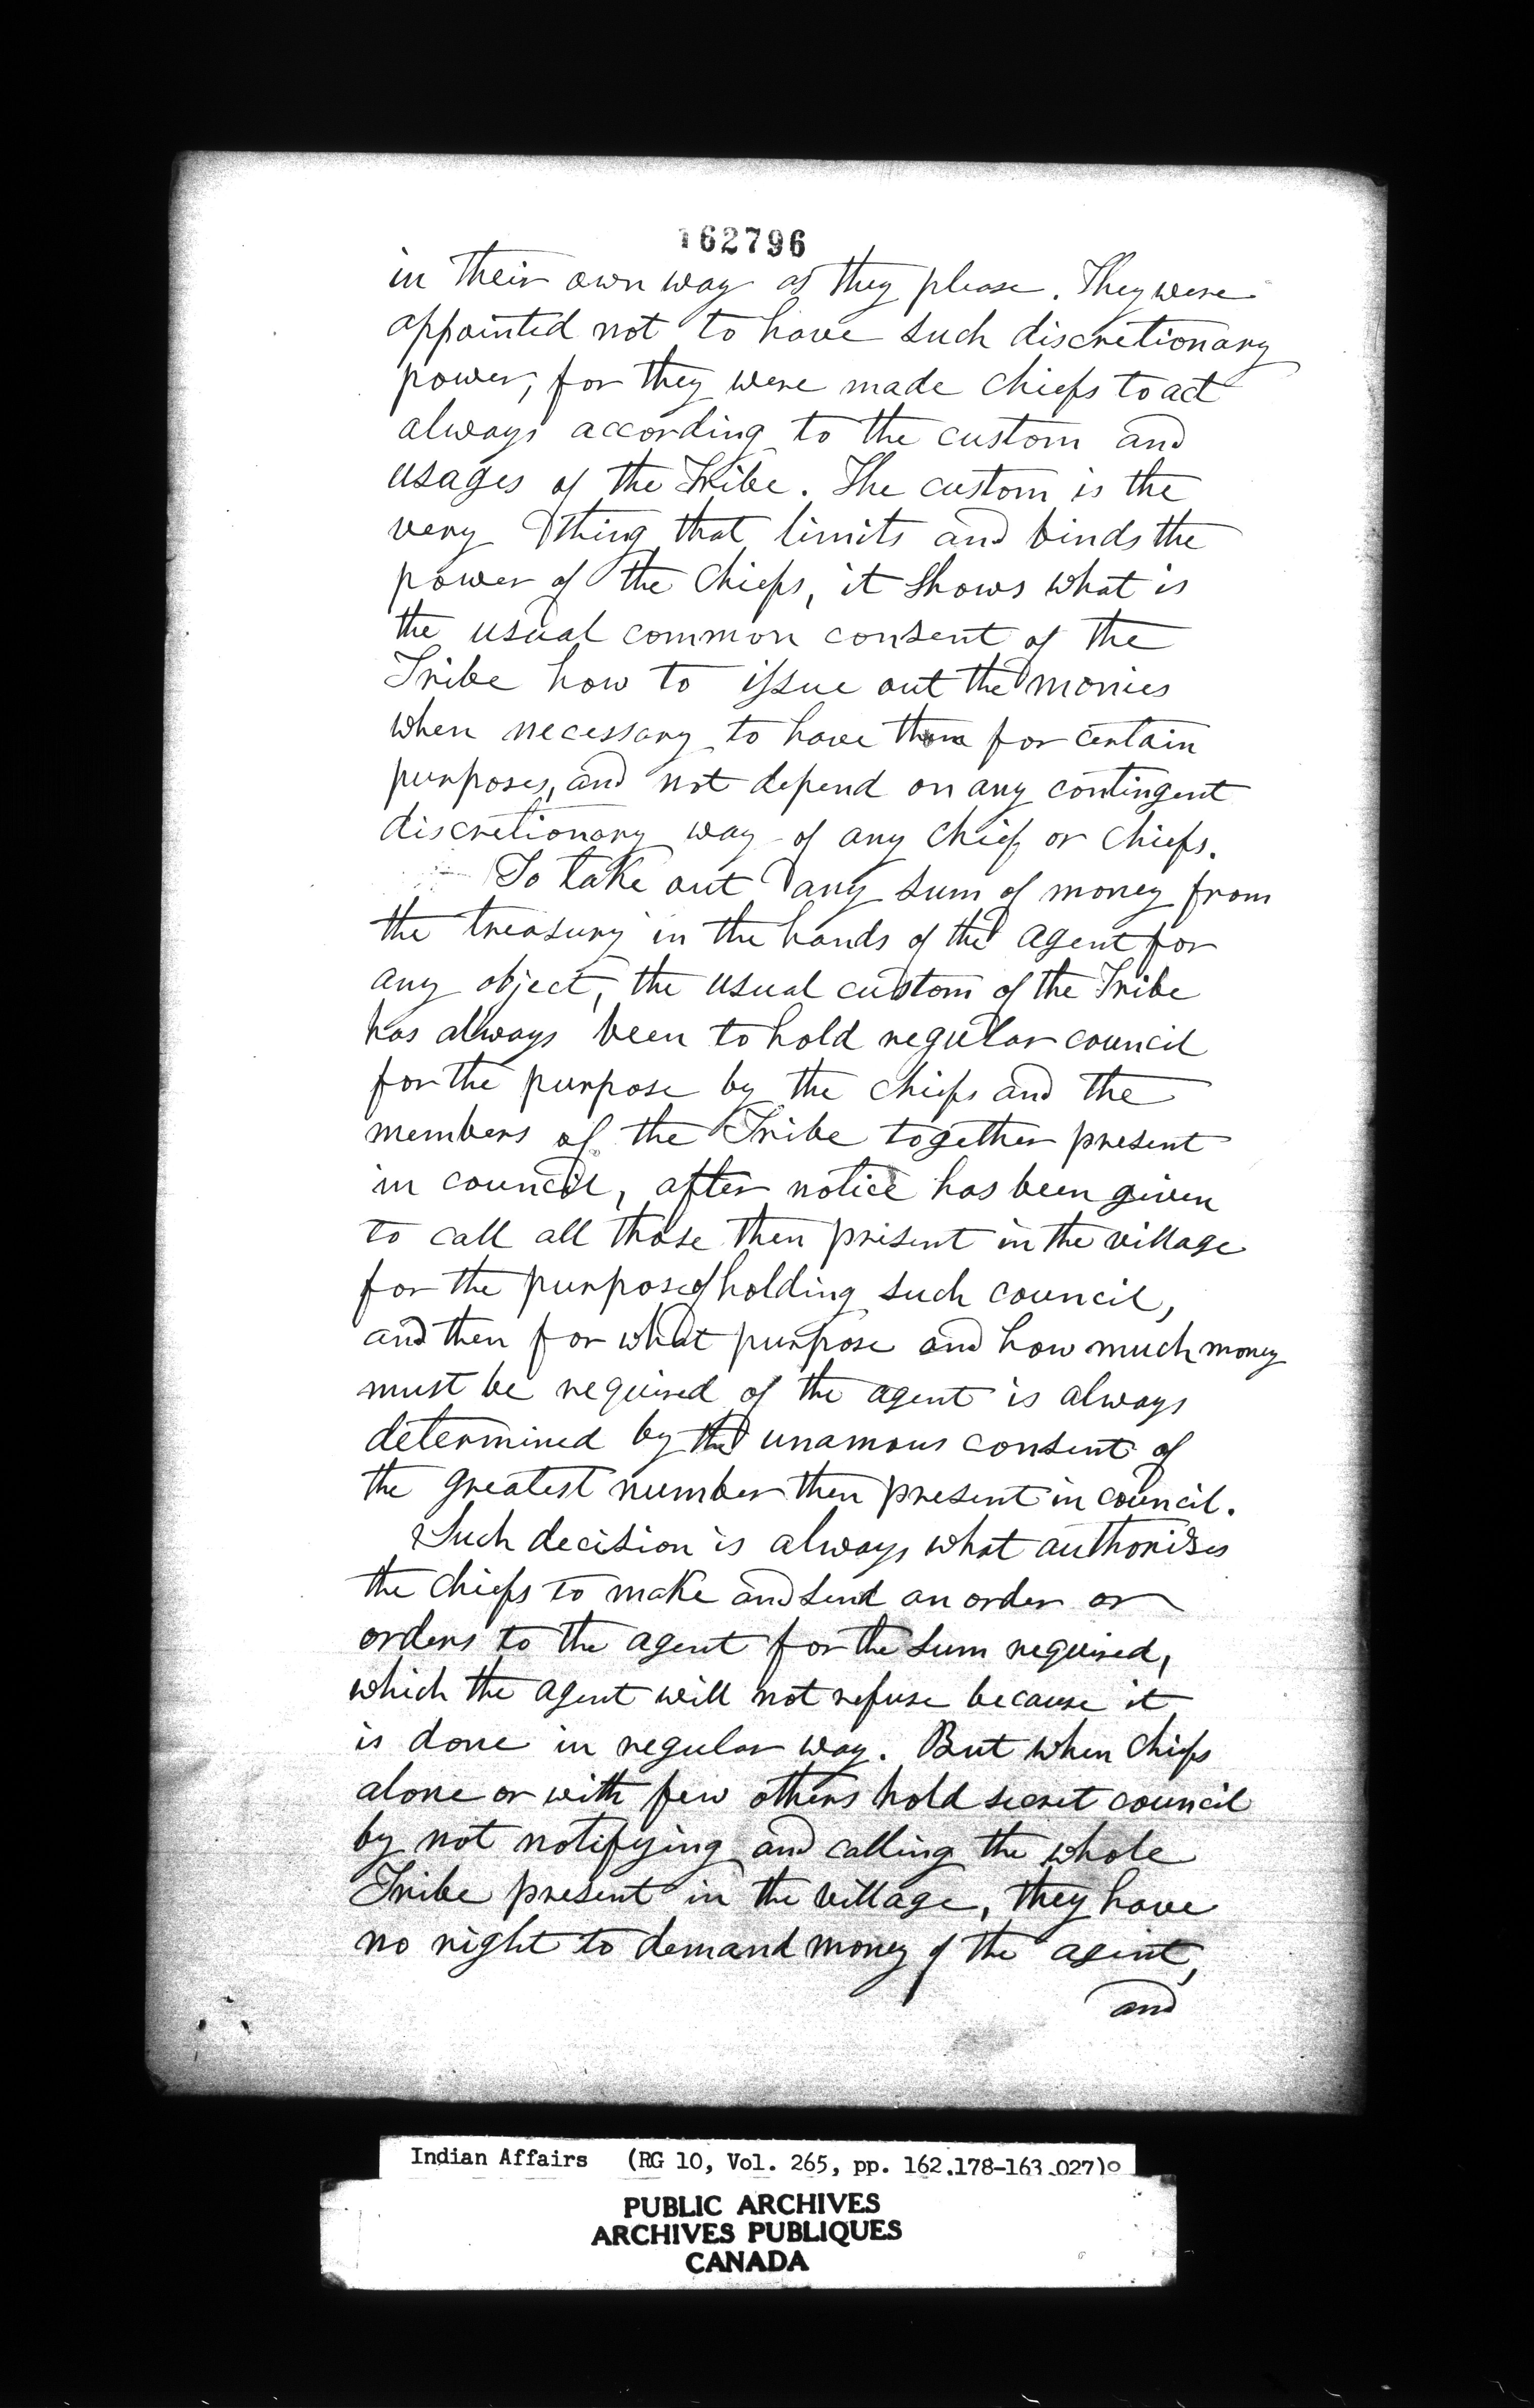 162796
in their own way as they please. They were
appointed not to have such discretionary
power, for they were made chiefs to act
always according to the custom and
usages of the Tribe. The custom is the
very thing that limits and binds the
power of the Chiefs, it shows what is
the usual common consent of the
Tribe how to issue out the monies
when necessary to have them for certain
purposes, and not depend on any contingent
discretionary way of any chief or chiefs.
To take out any sum of money from
the treasury in the hands of the agent for
any object, the usual custom of the Tribe
has always been to hold regular council
for the purpose by the chiefs and the
members of the Tribe together present
in council, after notice has been given
to call all those then present in the village
for the purpose of holding such council,
and then for what purpose and how much money
must be required of the agent is always
determined by the unamous consent of
the greatest number then present in council.
Such decision is always what authorises
the chiefs to make and send an order or
orders to the agent for the sum required,
which the agent will not refuse because it
is done in regular way. But when chiefs
alone or with few others hold secret council
by not notifying and calling the whole
Tribe present in the village, they have
no right to demand money of the agent,
and
Indian Affairs (RG 10, Vol. 265, pp. 162.178-163.027)
PUBLIC ARCHIVES
ARCHIVES PUBLIQUES
CANADA